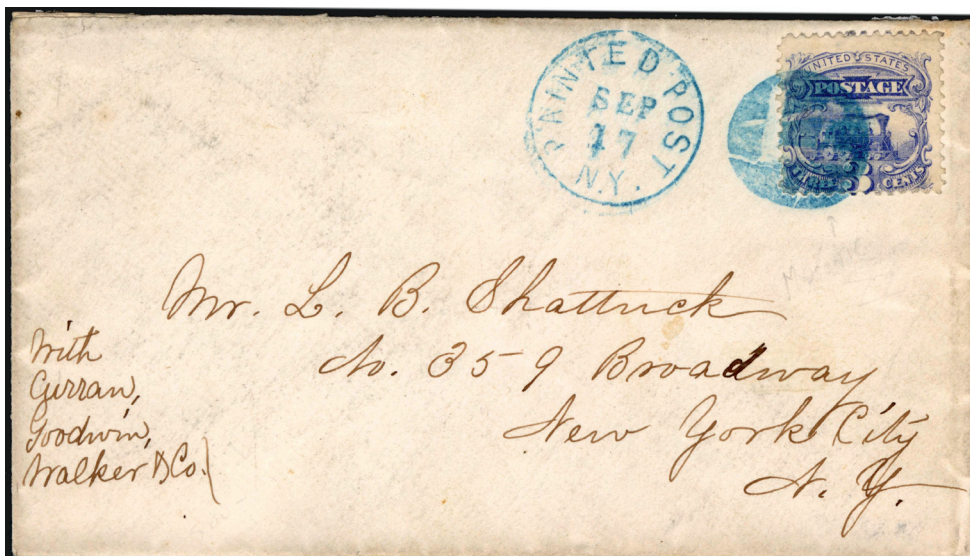 PAINTED POST
SEP
17
N.Y.
UNITED STATES
POSTAGE
THREE 3 CENTS
Mr. L. B. Shattuck
No. 359 Broadway
New York City
N. Y.
With
Curran,
Goodwin,
Walker & Co.